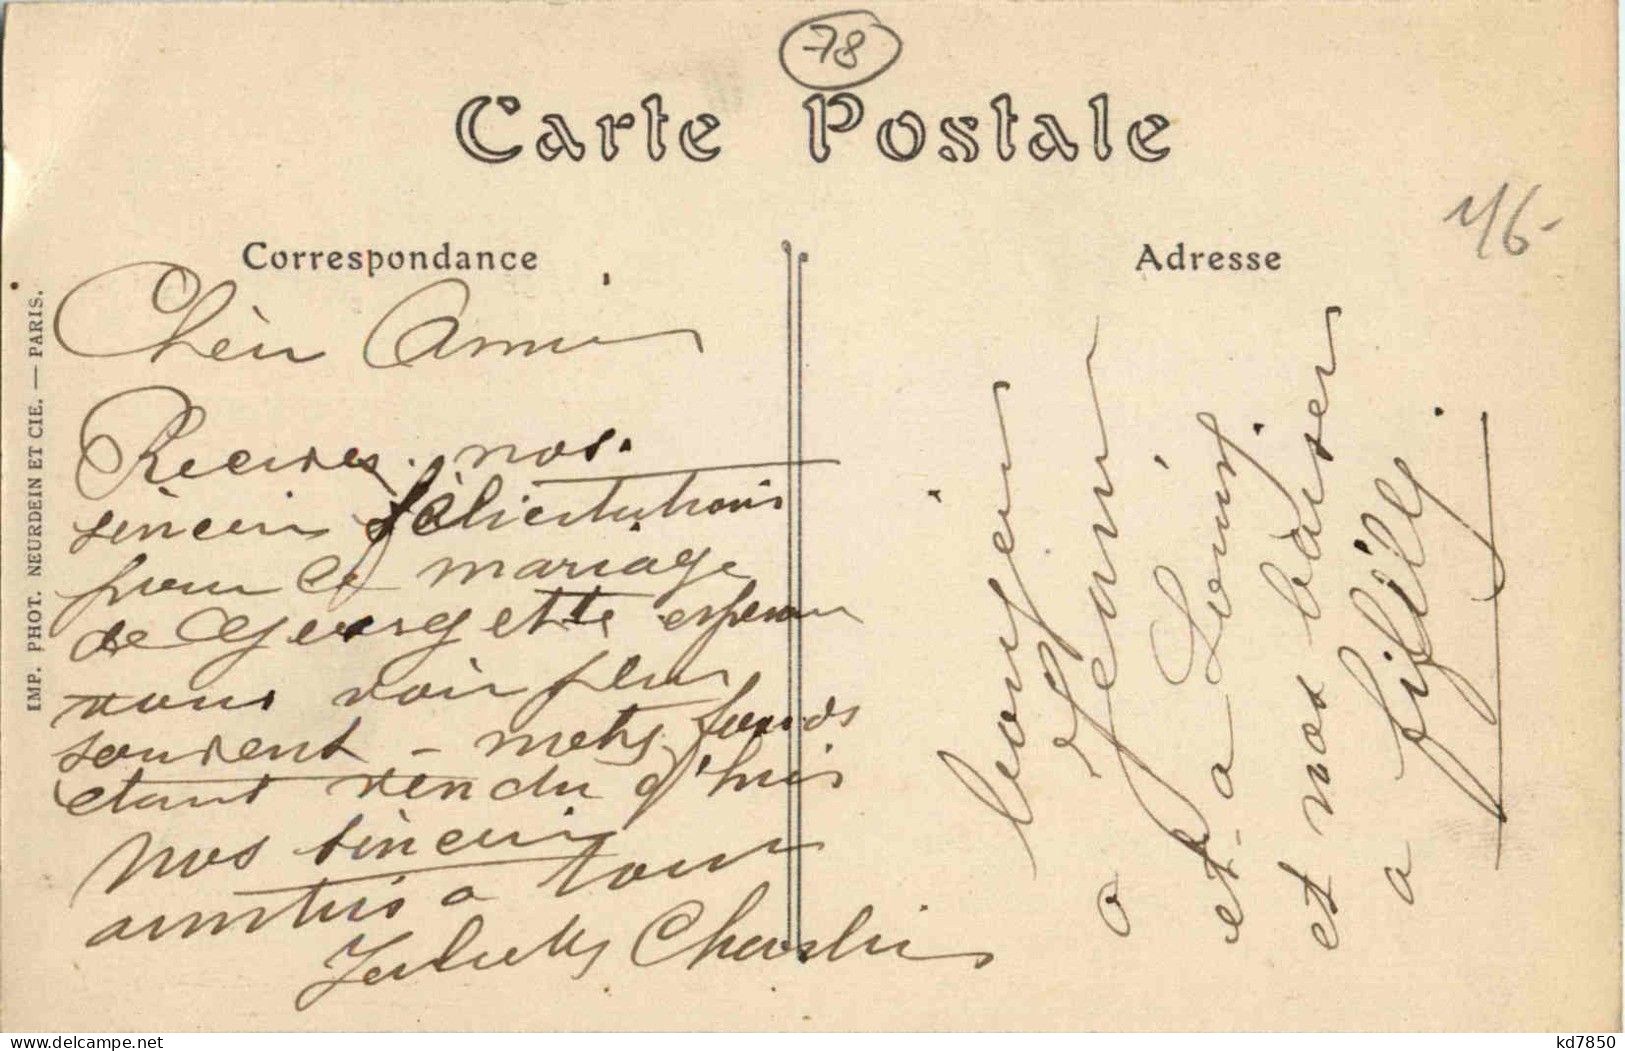 78
Carte Postale
1/6-
Correspondance
Adresse
IMP. PHOT. NEURDEIN ET CIE. — PARIS.
Chèr Amis
Recevez nos
sincers félicitations
pour le mariage
de Georgette esperan
vous voir plus
souvent -
etant rendu d'huis
Nos sincers
amitiés a tous
Juliette Charles
bonjour
a Jeanne
et a Louis
et nos baiser
a fifille
delcampe.net
kd7850